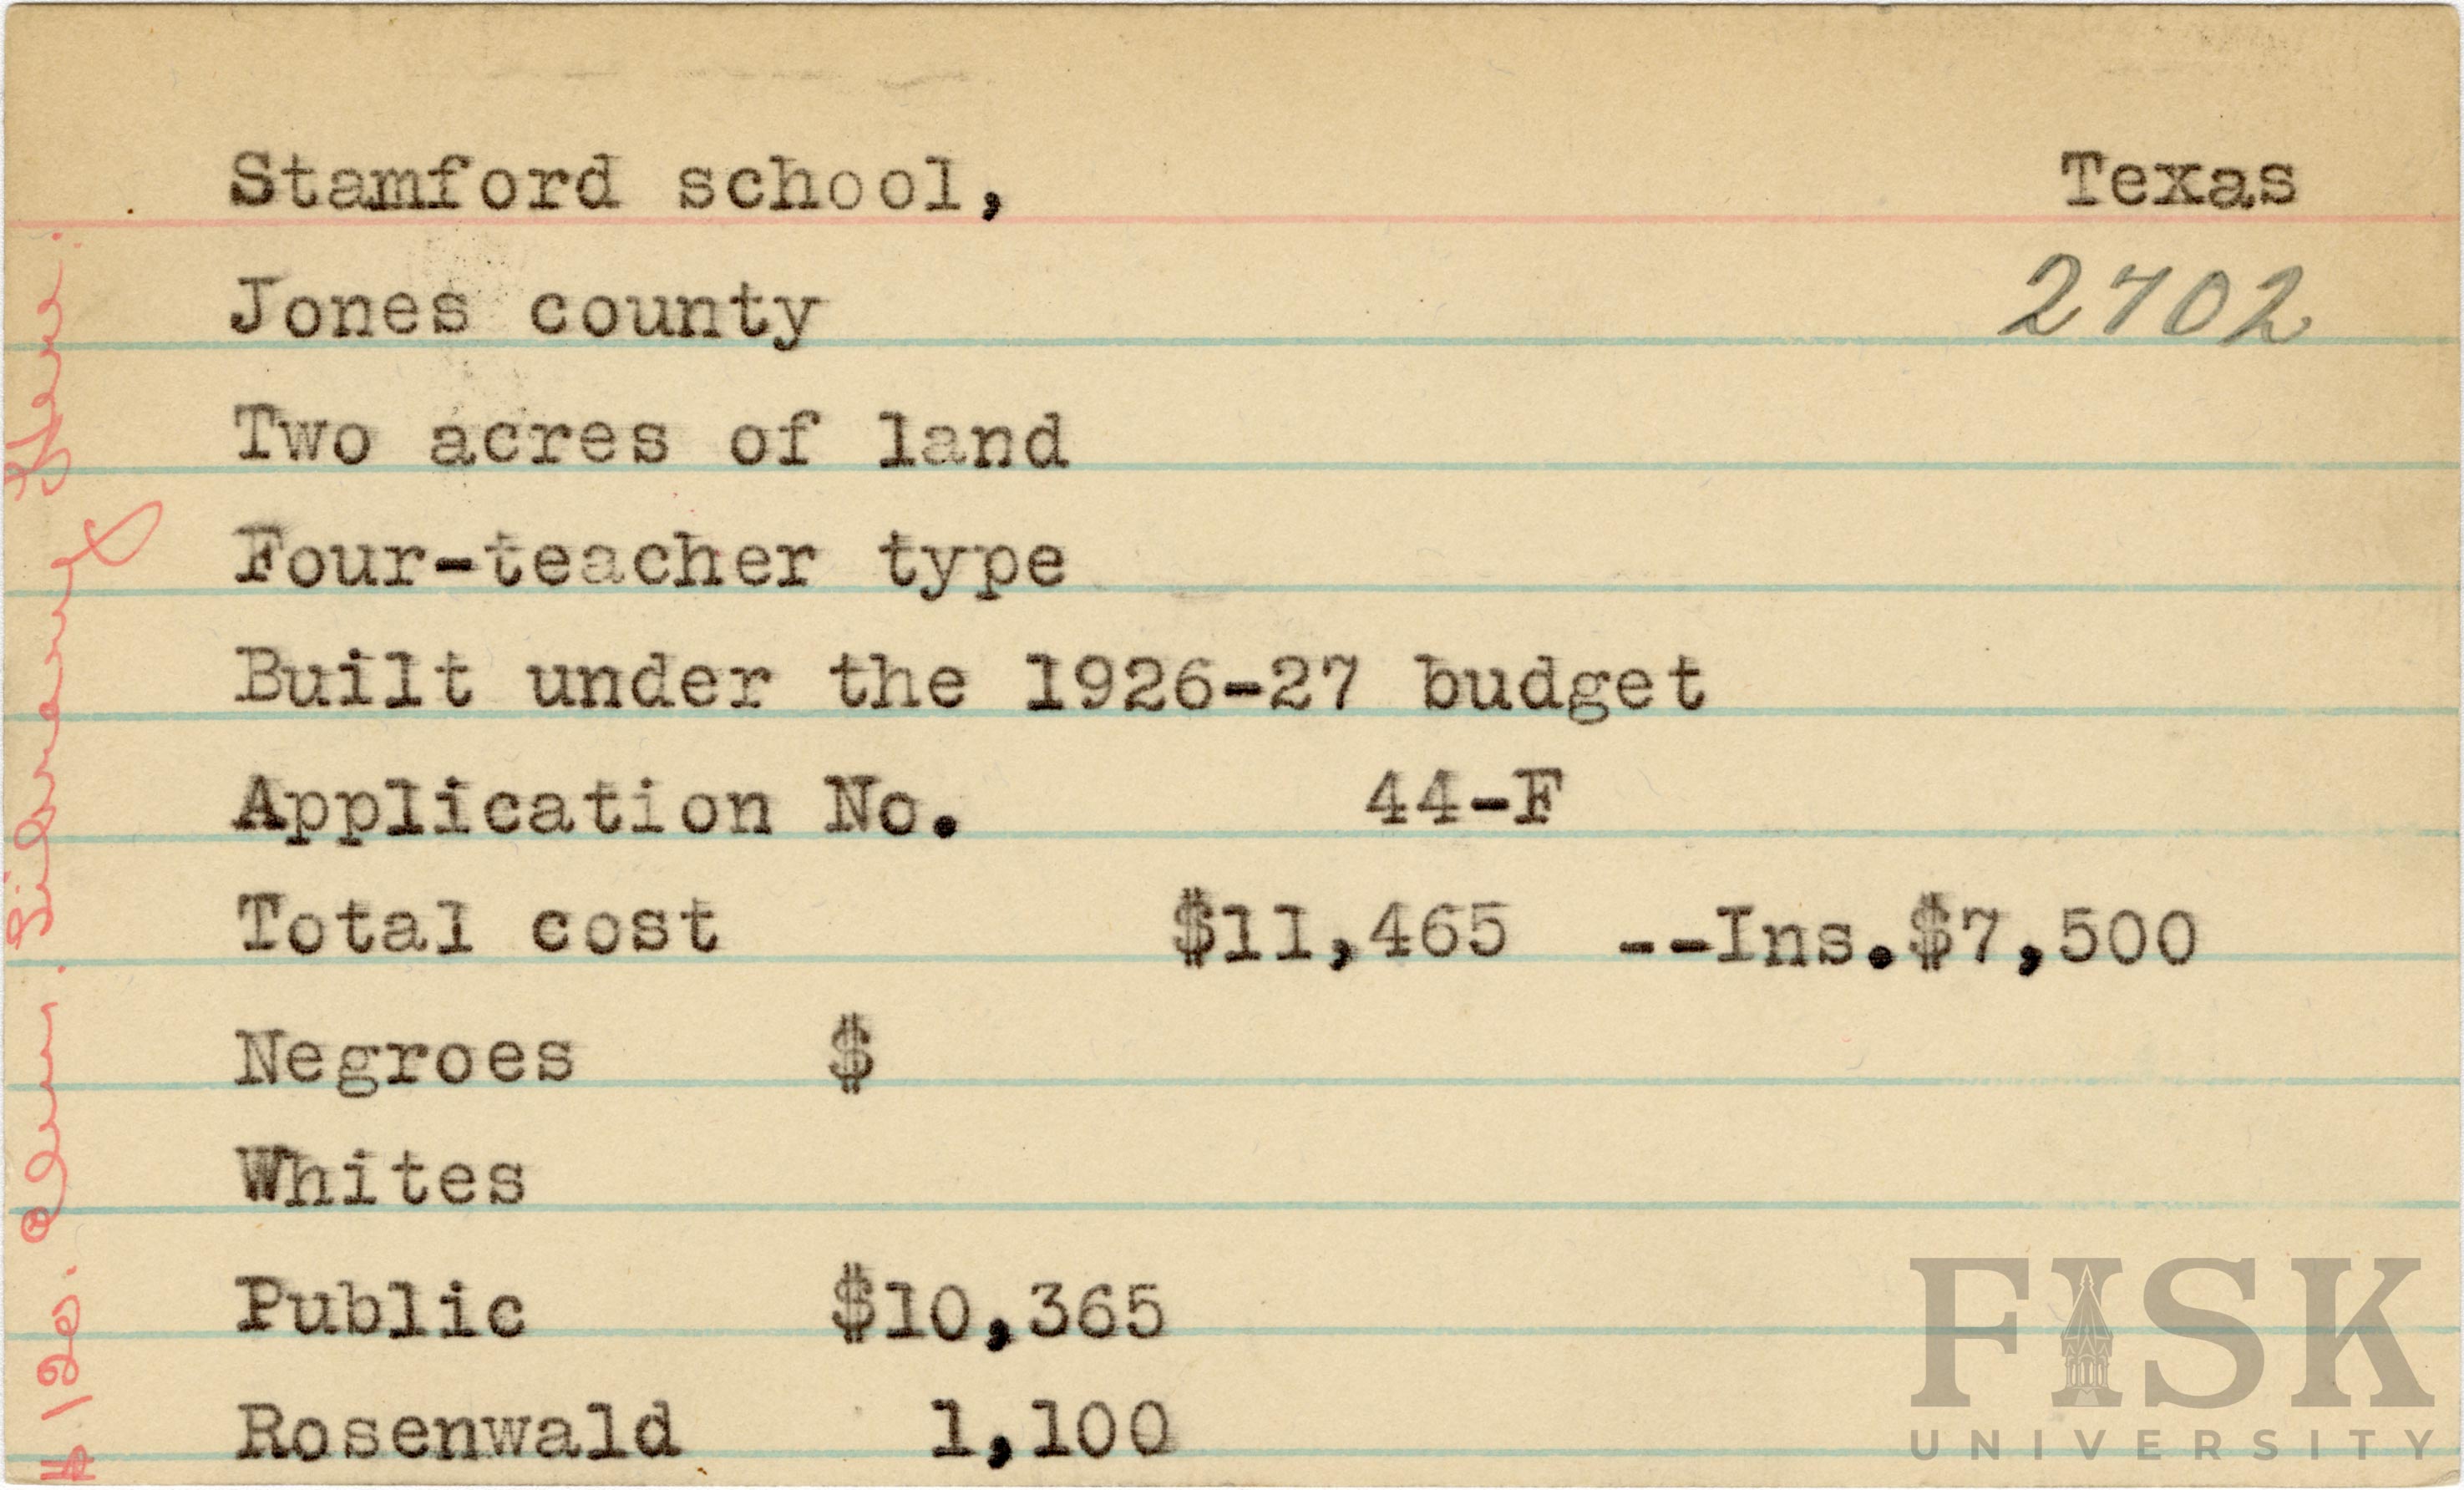 Stamford school, Texas
Jones county 2702
Two acres of land
Four-teacher type
Built under the 1926-27 budget
Application No. 44-F
Total cost $11,465 --Ins.$7,500
Negroes $
Whites
Public $10,365
Rosenwald 1,100
$120. Elem. Library
FISK
UNIVERSITY